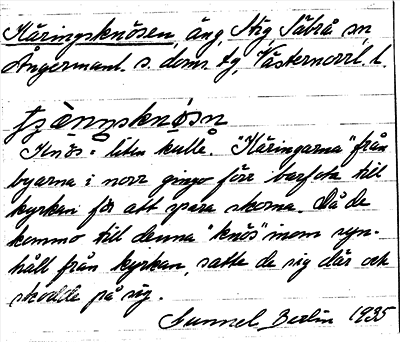 Käringsknösen, äng, Stig Säbrå sn,
Ångermanl. s. doms. tg, Västernorrl. l.
Knös = liten kulle. "Käringarna" från
byarna i norr gingo förr barfota till
kyrkan för att spara skorna. Då de
kommo till denna "knös" inom syn-
håll från kyrkan, satte de sig där och
skodde på sig.
Gunnel Berlin 1935